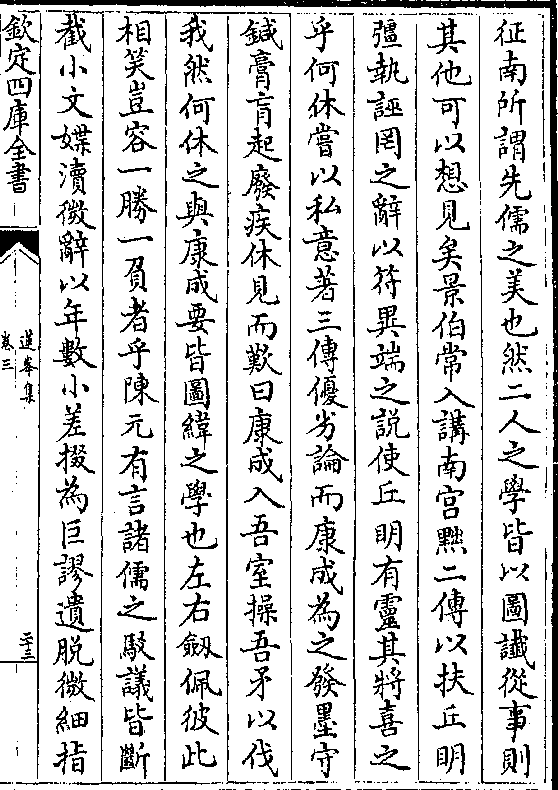 征南所謂先儒之美也然二人之學皆以圖讖從事則
其他可以想見矣景伯常入講南宫黜二傳以扶丘明
彊執誣罔之辭以符異端之説使丘明有靈其將喜之
乎何休嘗以私意著三傳優劣論而康成為之發墨守
鍼膏肓起廢疾休見而歎曰康成入吾室操吾矛以伐
我然何休之與康成要皆圖緯之學也左右劔佩彼此
相笑豈容一勝一負者乎陳元有言諸儒之駮議皆斷
截小文媟瀆微辭以年數小差掇為巨謬遺脱微細指
欽定四庫全書
蓮峯集
卷三
二十三